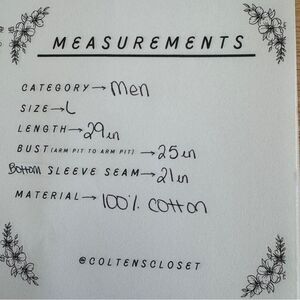 MEASUREMENTS
CATEGORY → Men
SIZE → L
LENGTH → 29in
BUST (ARM PIT TO ARM PIT) → 25in
Bottom SLEEVE SEAM → 21in
MATERIAL → 100% cotton
@COLTENSCLOSET